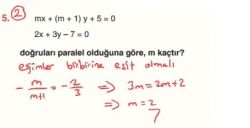 5. 2
mx + (m + 1) y + 5 = 0
2x + 3y – 7 = 0
doğruları paralel olduğuna göre, m kaçtır?
eğimler birbirine eşit olmalı
- m/m+1 = -2/3 ⇒ 3m = 2m+2
⇒ m = 2/7